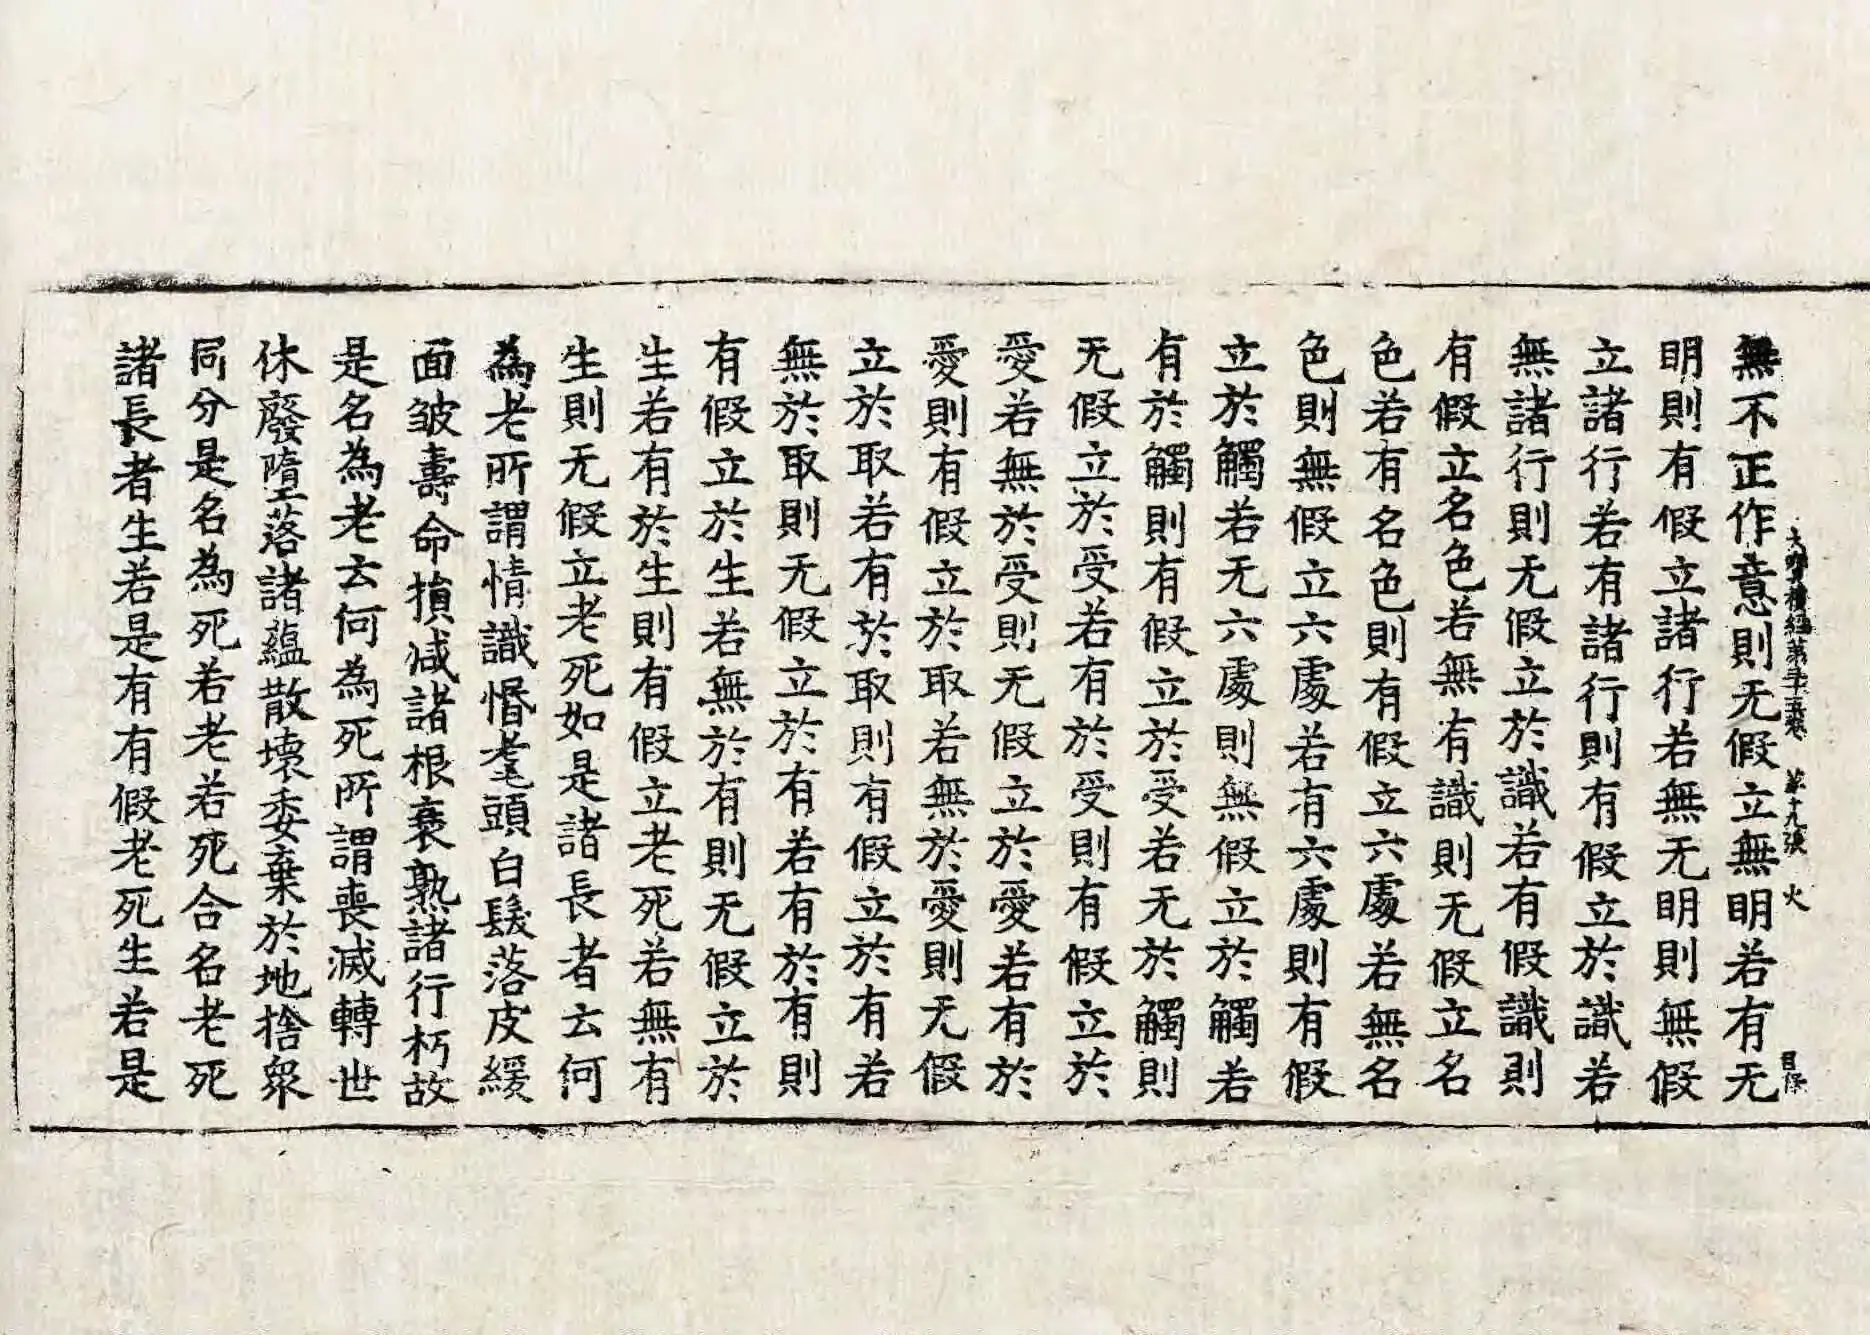 大寶積經第三十五卷 第十九張 火
無不正作意則无假立無明若有无
明則有假立諸行若無无明則無假
立諸行若有諸行則有假立於識若
無諸行則无假立於識若有假識則
有假立名色若無有識則无假立名
色若有名色則有假立六處若無名
色則無假立六處若有六處則有假
立於觸若无六處則無假立於觸若
有於觸則有假立於受若无於觸則
无假立於受若有於受則有假立於
愛若無於受則无假立於愛若有於
愛則有假立於取若無於愛則无假
立於取若有於取則有假立於有若
無於取則无假立於有若有於有則
有假立於生若無於有則无假立於
生若有於生則有假立老死若無有
生則无假立老死如是諸長者云何
為老所謂情識惛耄頭白髮落皮緩
面皺壽命損减諸根衰熟諸行朽故
是名為老云何為死所謂喪滅轉世
休廢墮落諸蘊散壞委棄於地捨眾
同分是名為死若老若死合名老死
諸長者生若是有有假老死生若是